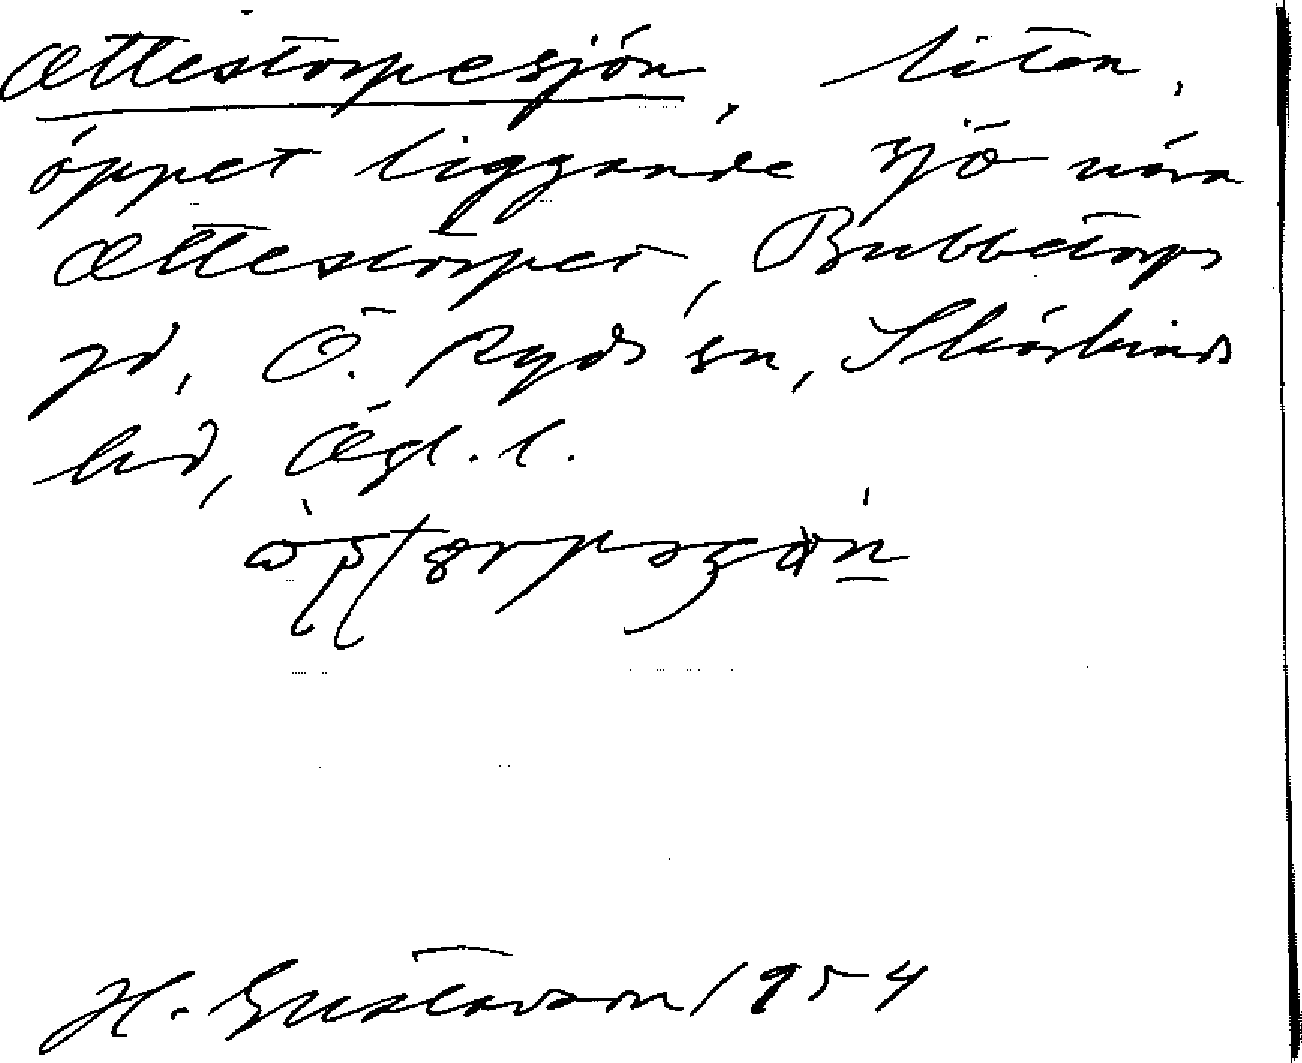 Ottestorpesjön, liten,
öppet liggande sjö nära
Ottestorpet, Bubbetorps
gd, Ö. Ryds sn, Skärkinds
hd, Ögl. l.
H. Gustavson 1954